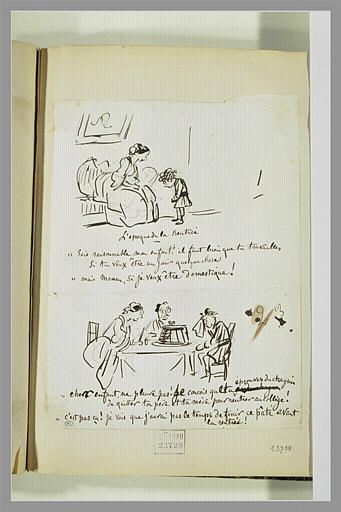 L'epoque de la Rentrée
" Sois raisonnable mon enfant! il faut bien que tu travailles
Si tu veux être un jour quelque chose
" mais Maman, si je veux être domestique!
eprouves du chagrin
" cher enfant ne pleure pas! je concois que tu
de quitter ton père et ta mère pour rentrer au college!
" c'est pas ça! je vois que j'aurai pas le temps de finir ce pâté avant
la rentrée!
1970
23728
23728